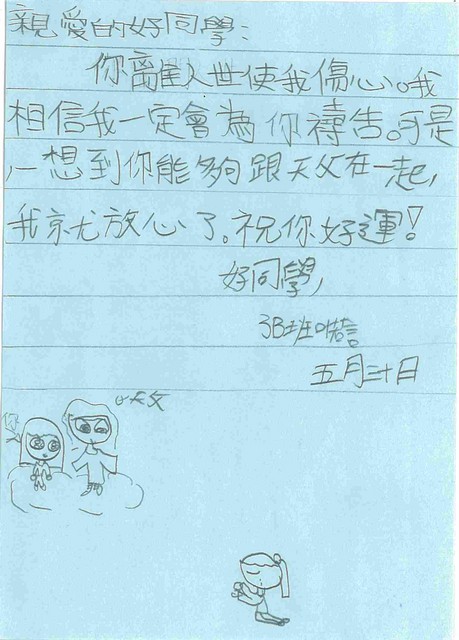 親愛的好同學:
你離人世使我傷心。我
相信我一定會為你禱告。可是
一想到你能夠跟天父在一起,
我就放心了。祝你好運!
好同學,
3B班
五月三十日
天父
你